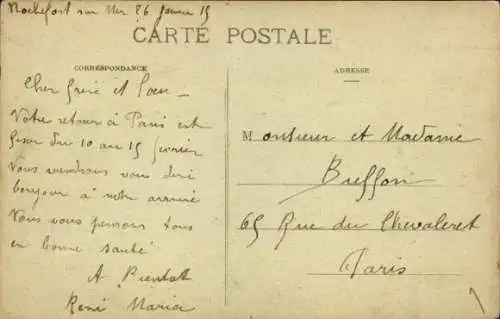 Rochefort sur Mer 26 Janvier 15
CARTE POSTALE
CORRESPONDANCE
ADRESSE
Cher frère et Soeur
Notre retour à Paris est
fixer du 10 au 15 février
Nous viendrons vous dire
bonjour à notre arrivée
Nous vous pensons tous
en bonne santé
A Bientot
René Maria
Monsieur et Madame
Buffon
65 Rue du Chevaleret
Paris